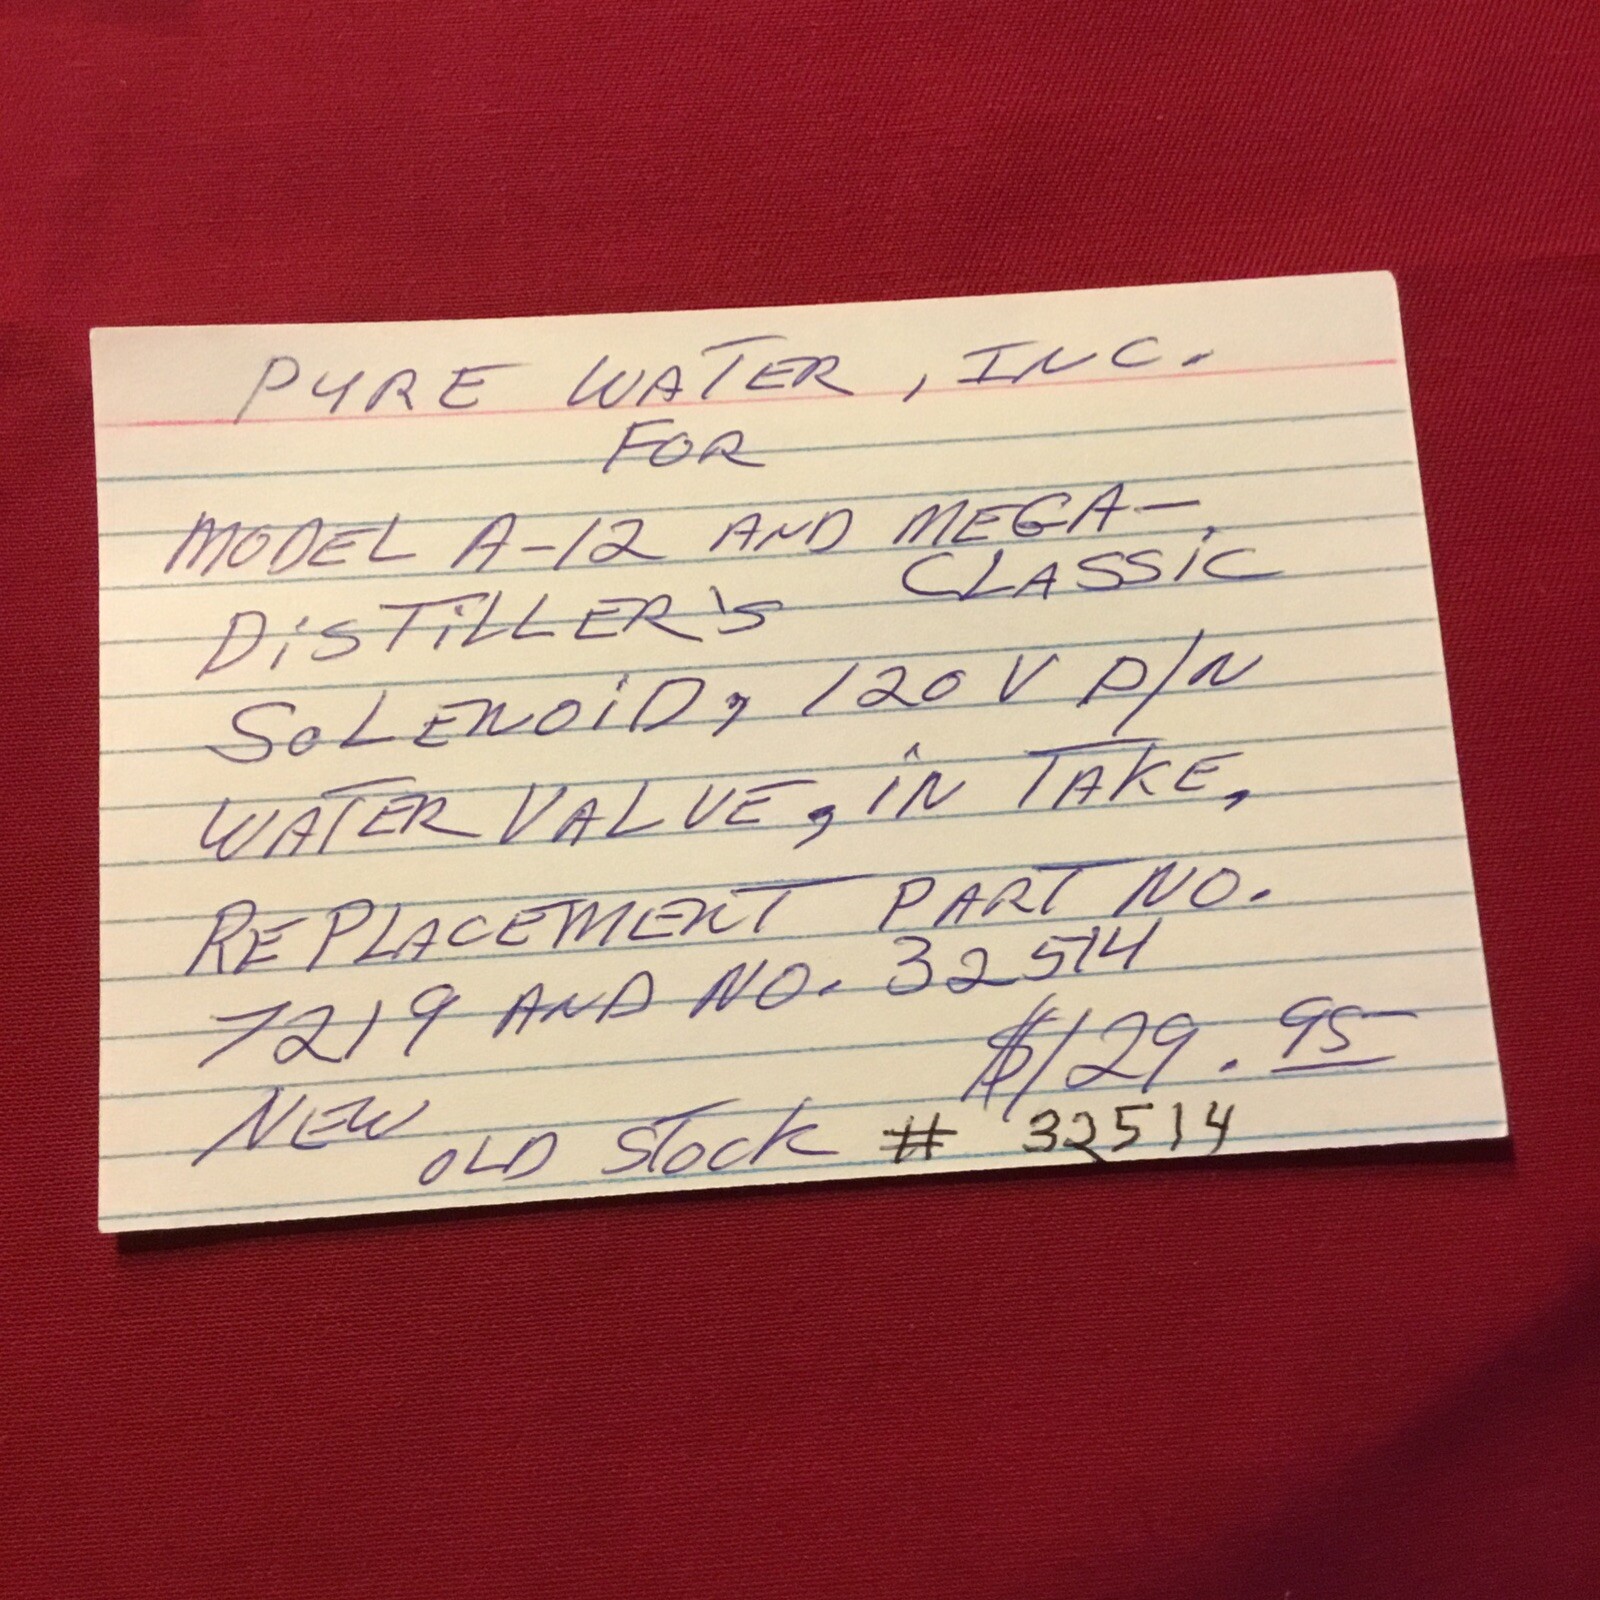 PURE WATER, INC.
FOR
MODEL A-12 AND MEGA-
CLASSIC
DISTILLER'S
SOLENOID, 120 V P/N
WATER VALVE, IN TAKE,
REPLACEMENT PART NO.
7219 AND NO. 32514
$129.95
NEW OLD STOCK # 32514